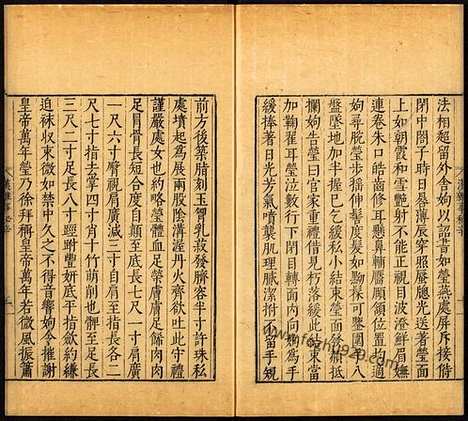 法相超留外舍姁以詔書如瑩燕處屏斥接侍
閉中閤子時日晷薄辰穿照蜃牕光送著瑩面
上如朝霞和雪艷射不能正視目波澄鮮眉嫵
連卷朱口皓齒修耳懸鼻輔靨頤頷位置均適
姁尋脫瑩步搖伸髻度髮如黝髹可鑑圍手八
盤墜地加半握已乞緩私小結束瑩面發赬抵
攔姁告瑩曰官家重禮借見朽落緩此結束當
加鞠翟耳瑩泣數行下閉目轉面內向姁為手
緩捧著日光芳氣噴襲肌理膩潔拊不留手規
前方後築脂刻玉胷乳菽發臍容半寸許珠私
處墳起為展兩股陰溝渥丹火齊欲吐此守禮
謹嚴處女也約略瑩體血足榮膚膚足飾肉肉
足冒骨長短合度自顛至底長七尺一寸肩廣
一尺六寸臀視肩廣減三寸自肩至指長各二
尺七寸指去掌四寸肖十竹萌削也髀至足長
三尺二寸足長八寸踁跗豐妍底平指斂約縑
迫袜收束微如禁中久之不得音響姁令推謝
皇帝萬年瑩乃徐拜稱皇帝萬年若微風振簫